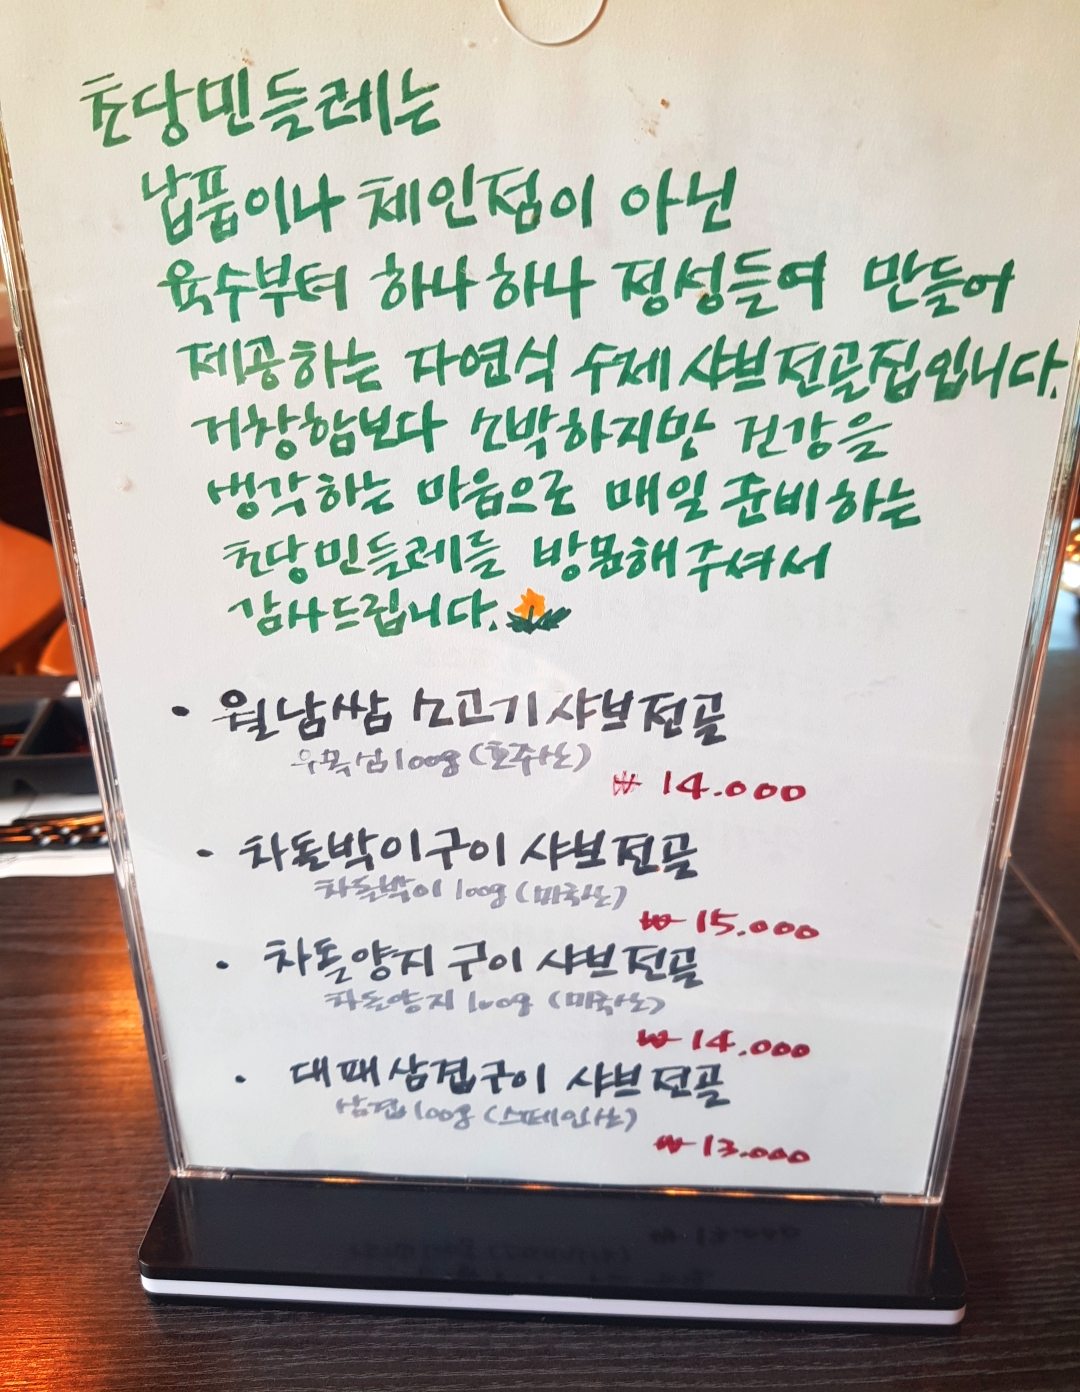 초당민들레는
납품이나 체인점이 아닌
육수부터 하나하나 정성들여 만들어
제공하는 자연식 수제 샤브전골집입니다.
거창함보다 소박하지만 건강을
생각하는 마음으로 매일 준비하는
초당민들레를 방문해주셔서
감사드립니다.
• 월남쌈 소고기 샤브전골
우목심 100g (호주산)
₩ 14.000
• 차돌박이구이 샤브전골
차돌박이 100g (미국산)
₩ 15.000
• 차돌양지 구이 샤브전골
차돌양지 100g (미국산)
₩ 14.000
• 대패삼겹구이 샤브전골
삼겹 100g (스페인산)
₩ 13.000